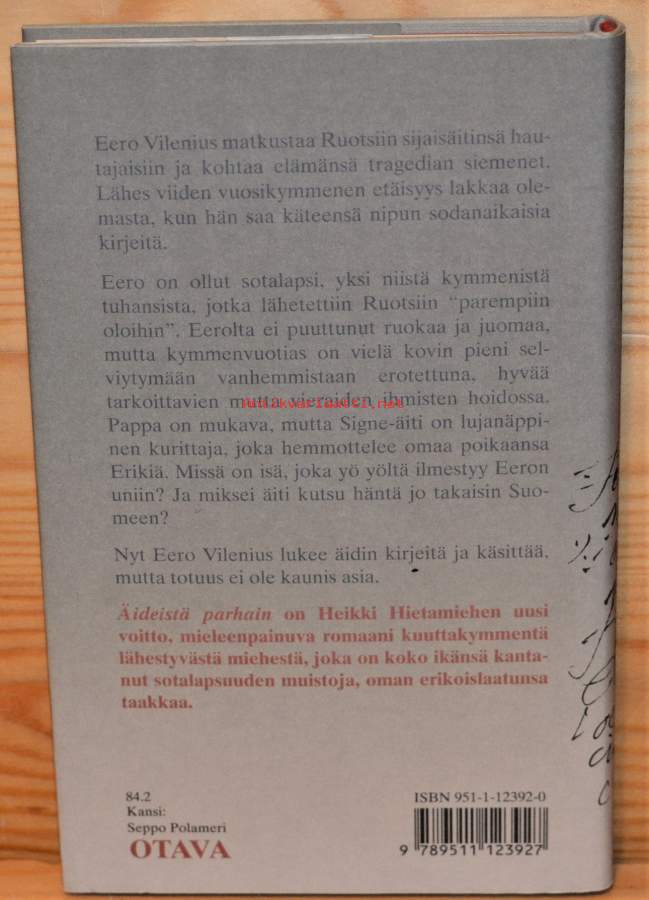 Eero Vilenius matkustaa Ruotsiin sijaisäitinsä hau-
tajaisiin ja kohtaa elämänsä tragedian siemenet.
Lähes viiden vuosikymmenen etäisyys lakkaa ole-
masta, kun hän saa käteensä nipun sodanaikaisia
kirjeitä.
Eero on ollut sotalapsi, yksi niistä kymmenistä
tuhansista, jotka lähetettiin Ruotsiin “parempiin
oloihin”. Eerolta ei puuttunut ruokaa ja juomaa,
mutta kymmenvuotias on vielä kovin pieni sel-
viytymään vanhemmistaan erotettuna, hyvää
tarkoittavien mutta vieraiden ihmisten hoidossa.
Pappa on mukava, mutta Signe-äiti on lujanäppi-
nen kurittaja, joka hemmottelee omaa poikaansa
Erikiä. Missä on isä, joka yö yöltä ilmestyy Eeron
uniin? Ja miksei äiti kutsu häntä jo takaisin Suo-
meen?
Nyt Eero Vilenius lukee äidin kirjeitä ja käsittää,
mutta totuus ei ole kaunis asia.
Äideistä parhain on Heikki Hietamiehen uusi
voitto, mieleenpainuva romaani kuuttakymmentä
lähestyvästä miehestä, joka on koko ikänsä kanta-
nut sotalapsuuden muistoja, oman erikoislaatunsa
taakkaa.
84.2
Kansi:
Seppo Polameri
OTAVA
ISBN 951-1-12392-0
9 789511 123927